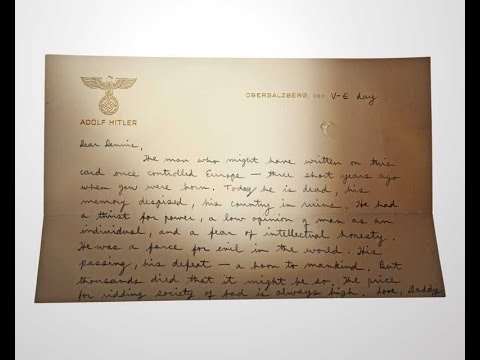 ADOLF HITLER
OBERSALZBERG, DEN V-E day
Dear Dennis,
The man who might have written on this
card once controlled Europe — three short years ago
when you were born. Today he is dead, his
memory despised, his country in ruins. He had
a thirst for power, a low opinion of man as an
individual, and a fear of intellectual honesty.
He was a force for evil in the world. His
passing, his defeat — a boon to mankind. But
thousands died that it might be so. The price
for ridding society of bad is always high. Love, Daddy